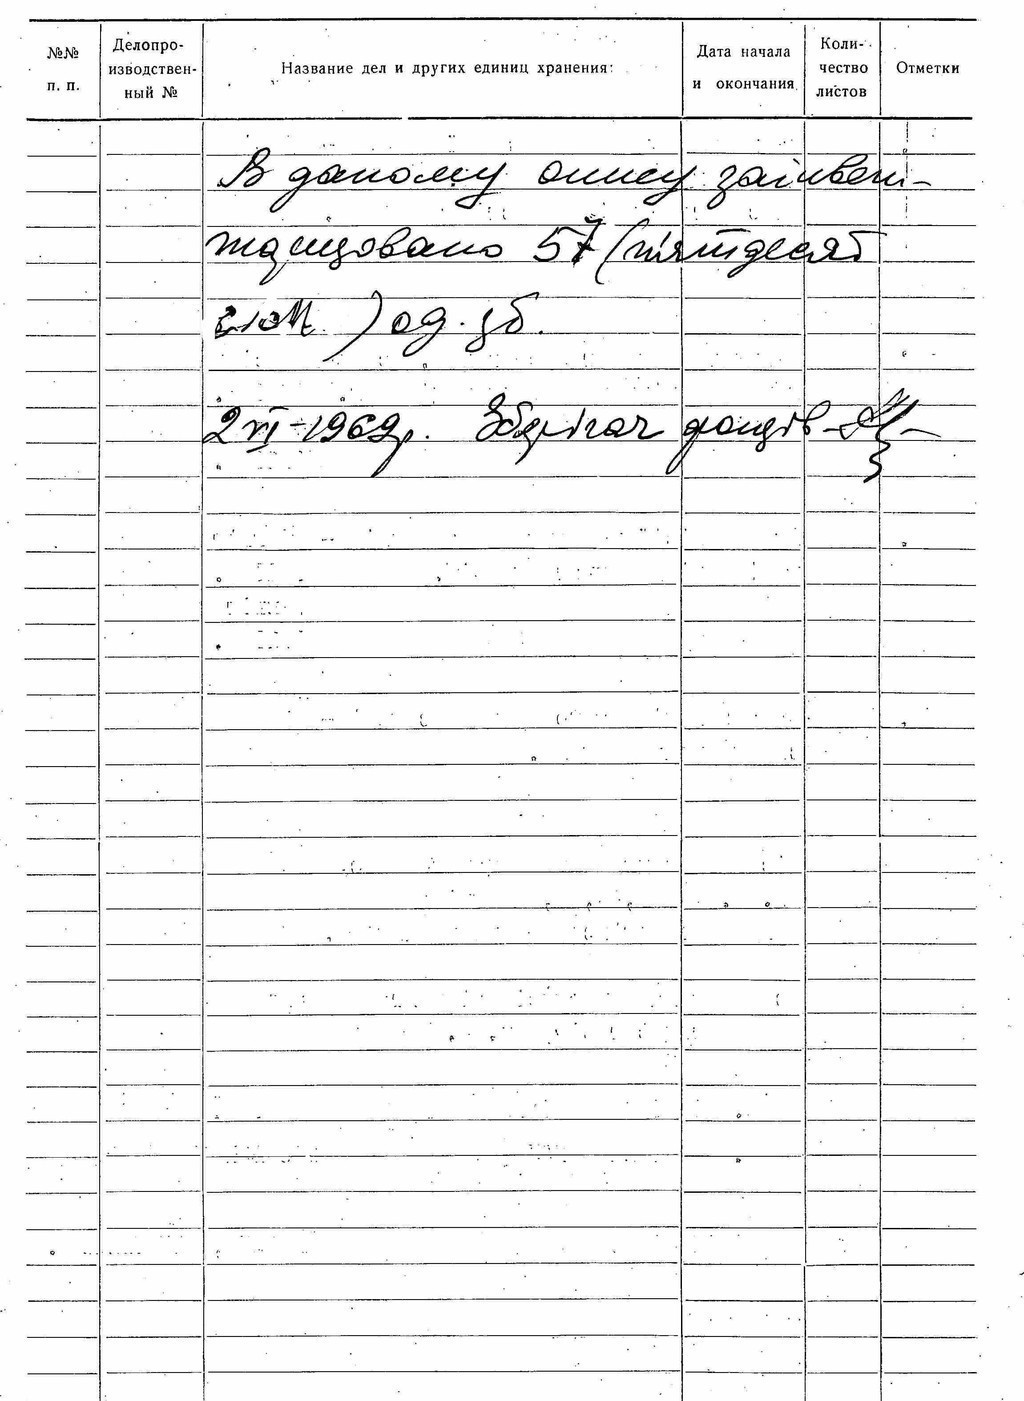 №№ п. п.
Делопроизводствен-
ный №
Название дел и других единиц хранения:
Дата начала
и окончания
Коли-
чество
листов
Отметки
В даному опису заінвен-
таризовано 57 (п'ятдесят
сім) од. зб.
2 VI-1969р. Зберігач фондів